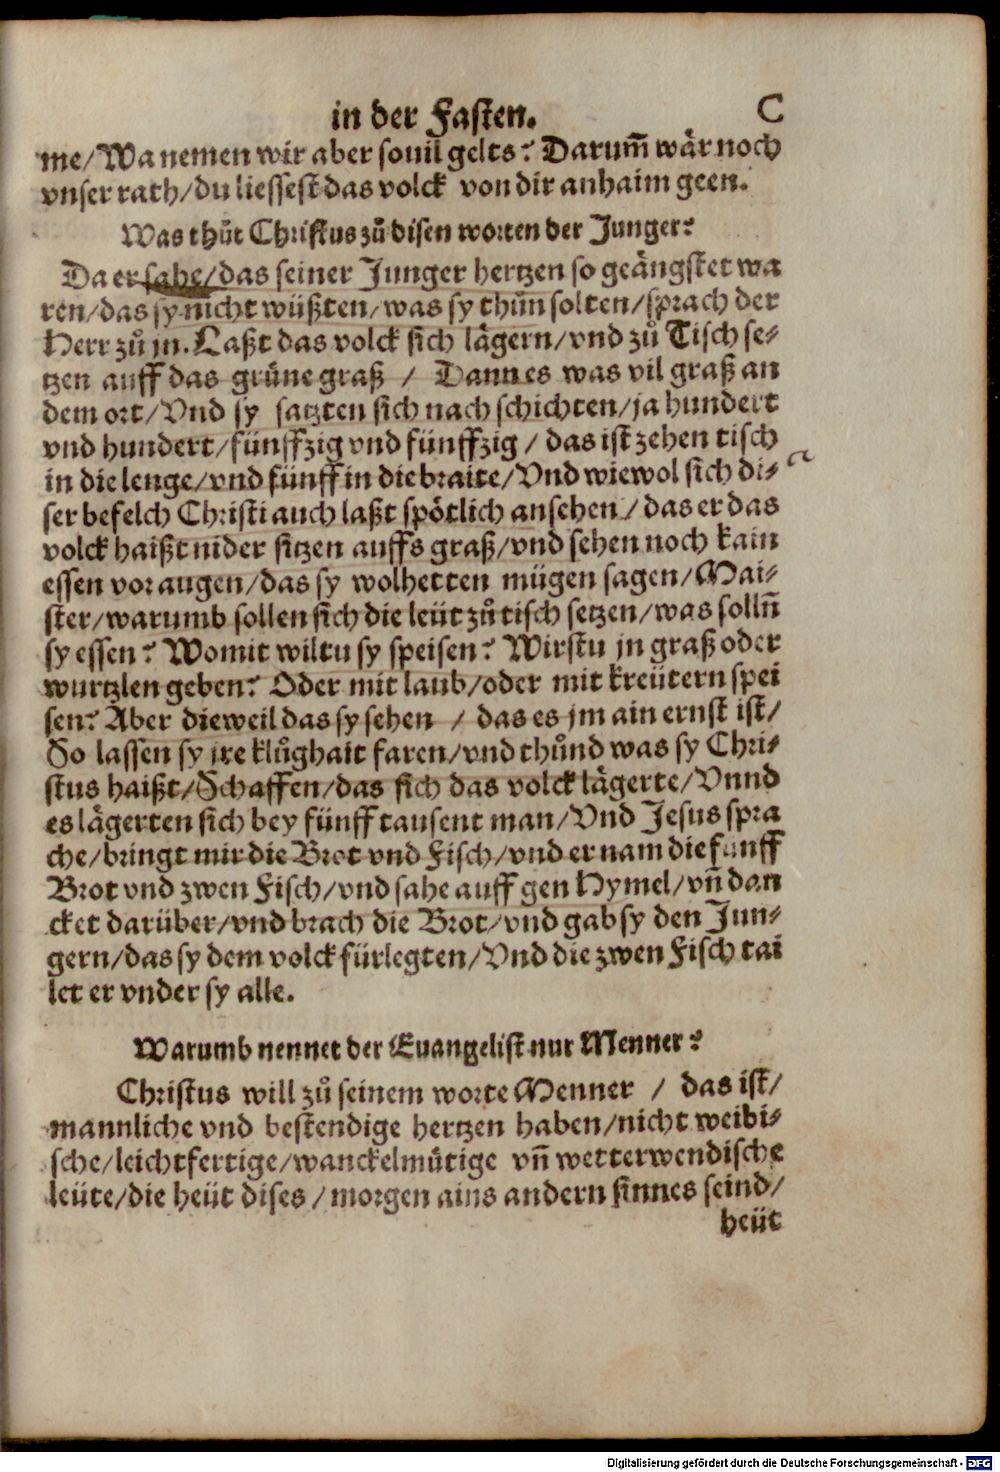 in der Fasten. C
me/Wa nemen wir aber souil gelts? Darum̃ wår noch
vnser rath/du liessest das volck von dir anhaim geen.
Was thůt Christus zů disen worten der Junger?
Da er sahe/das seiner Junger hertzen so geångstet wa
ren/das sy nicht wüßten/was sy thůn solten/sprach der
Herr zů jn. Laßt das volck sich lågern/vnd zů Tisch se-
tzen auff das grüne graß / Dann es was vil graß an
dem ort/Vnd sy satzten sich nach schichten/ja hundert
vnd hundert/fünffzig vnd fünffzig / das ist zehen tisch
in die lenge/vnd fünff in die braite/Vnd wiewol sich di-
ser befelch Christi auch laßt spötlich ansehen / das er das
volck haißt nider sitzen auffs graß/vnd sehen noch kain
essen vor augen/das sy wol hetten mügen sagen/Mai-
ster/warumb sollen sich die leüt zů tisch setzen/was solln̄
sy essen? Womit wiltu sy speisen? Wirstu jn graß oder
wurtzlen geben? Oder mit laub/oder mit kreütern spei
sen? Aber dieweil das sy sehen / das es jm ain ernst ist/
So lassen sy jre klůghait faren/vnd thůnd was sy Chri-
stus haißt/Schaffen/das sich das volck lågerte/Vnnd
es lågerten sich bey fünff tausent man/Vnd Jesus spra
che/bringt mir die Brot vnd Fisch/vnd er nam die fünff
Brot vnd zwen Fisch/vnd sahe auff gen Hymel/vn̄ dan
cket darüber/vnd brach die Brot/vnd gab sy den Jun-
gern/das sy dem volck fürlegten/Vnd die zwen Fisch tai
let er vnder sy alle.
Warumb nennet der Euangelist nur Menner?
Christus will zů seinem worte Menner / das ist/
mannliche vnd bestendige hertzen haben/nicht weibi-
sche/leichtfertige/wanckelmütige vn̄ wetterwendische
leüte/die heüt dises / morgen ains andern sinnes seind/
heüt
Digitalisierung gefördert durch die Deutsche Forschungsgemeinschaft - DFG